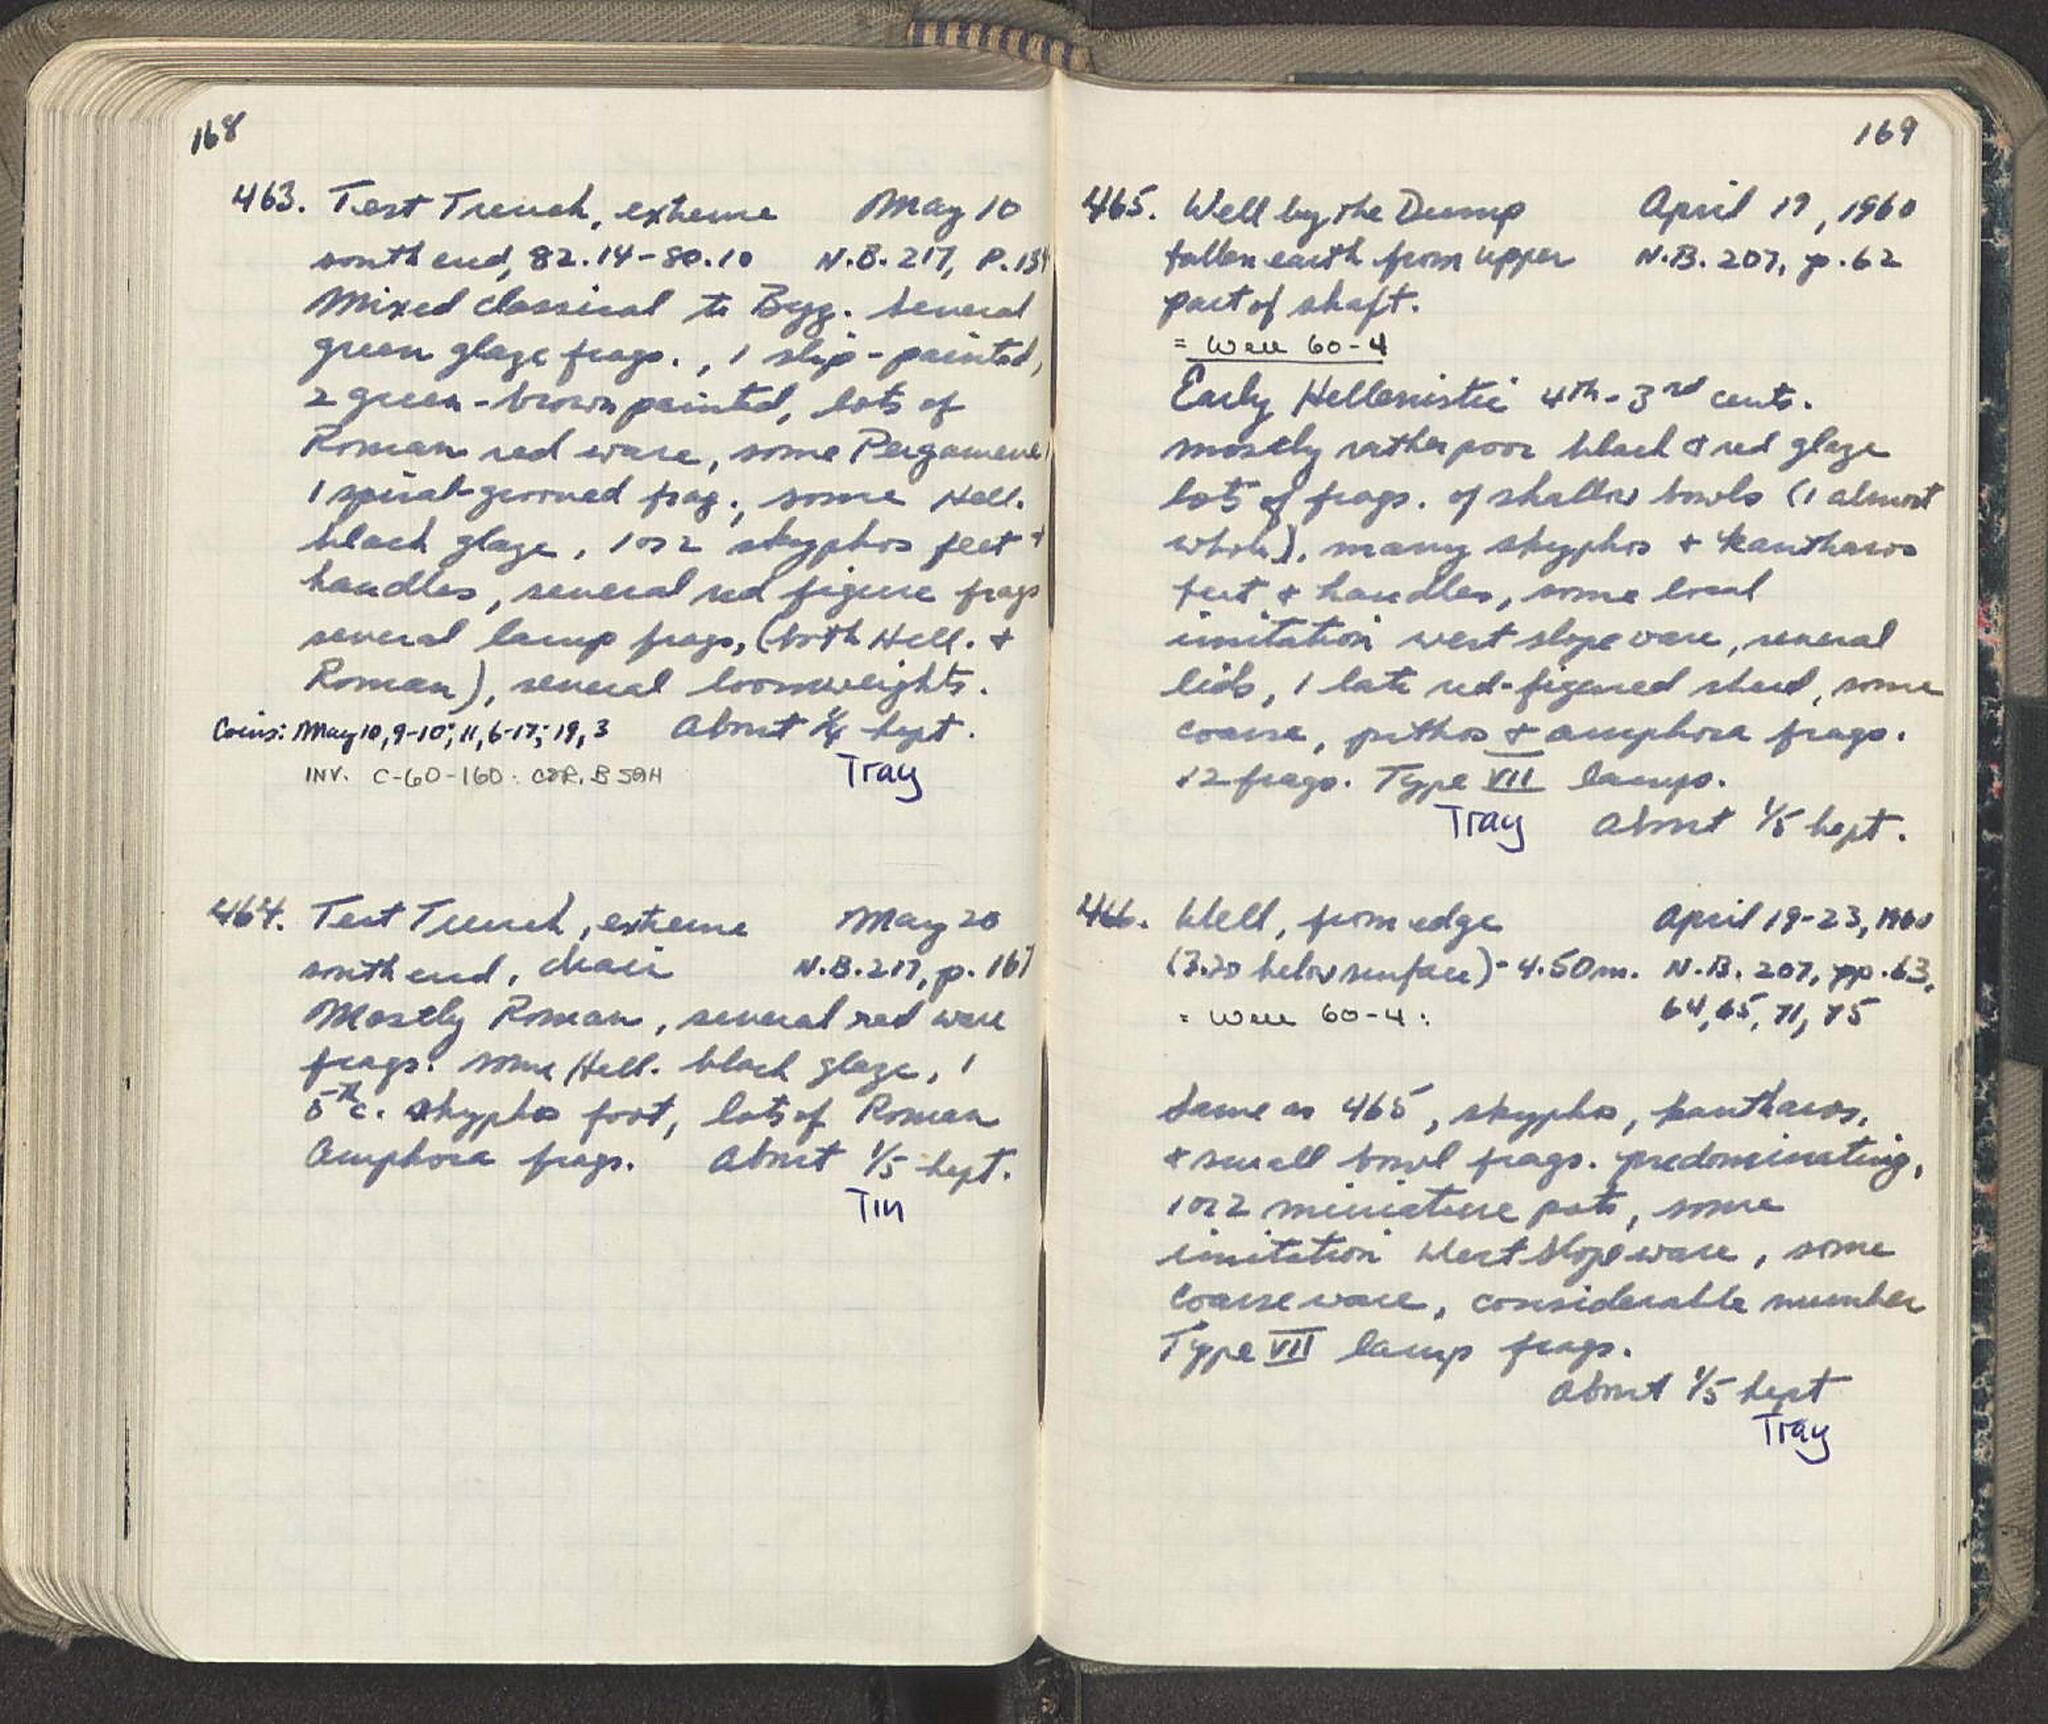 168
463. Test Trench, extreme May 10
south end, 82.14-80.10 N.B. 217, P.134
Mixed classical to Byz. Several
green glaze frags., 1 slip-painted,
2 green-brown painted, lots of
Roman red ware, some Pergamene,
1 spiral-grooved frag., some Hell.
black glaze, 1 or 2 skyphos feet +
handles, several red figure frags
several lamp frags, (both Hell. +
Roman), several loomweights.
Coins: May 10, 9-10; 11, 6-17; 19, 3 About 1/4 kept.
INV. C-60-160: COR. B59H Tray
464. Test Trench, extreme May 20
south end, drain N.B. 217, p. 167
Mostly Roman, several red ware
frags. some Hell. black glaze, 1
5th c. skyphos foot, lots of Roman
Amphora frags. About 1/5 kept.
Tin
169
465. Well by the Dump April 19, 1960
fallen earth from upper N.B. 207, p. 62
part of shaft.
= Well 60-4
Early Hellenistic 4th-3rd cents.
mostly rather poor black & red glaze
lots of frags. of shallow bowls (1 almost
whole), many skyphos + kantharos
feet & handles, some local
imitation west slope ware, several
lids, 1 late red-figured sherd, some
coarse, pithos & amphora frags.
12 frags. Type VII lamps.
Tray About 1/5 kept.
466. Well, from edge April 19-23, 1960
(3.20 below surface)-4.50m. N.B. 207, pp. 63,
= Well 60-4: 64, 65, 71, 75
Same as 465, skyphos, kantharos,
+ small bowl frags. predominating,
1 or 2 miniature pots, some
imitation West Slope ware, some
Coarse ware, considerable number
Type VII lamp frags.
About 1/5 kept
Tray